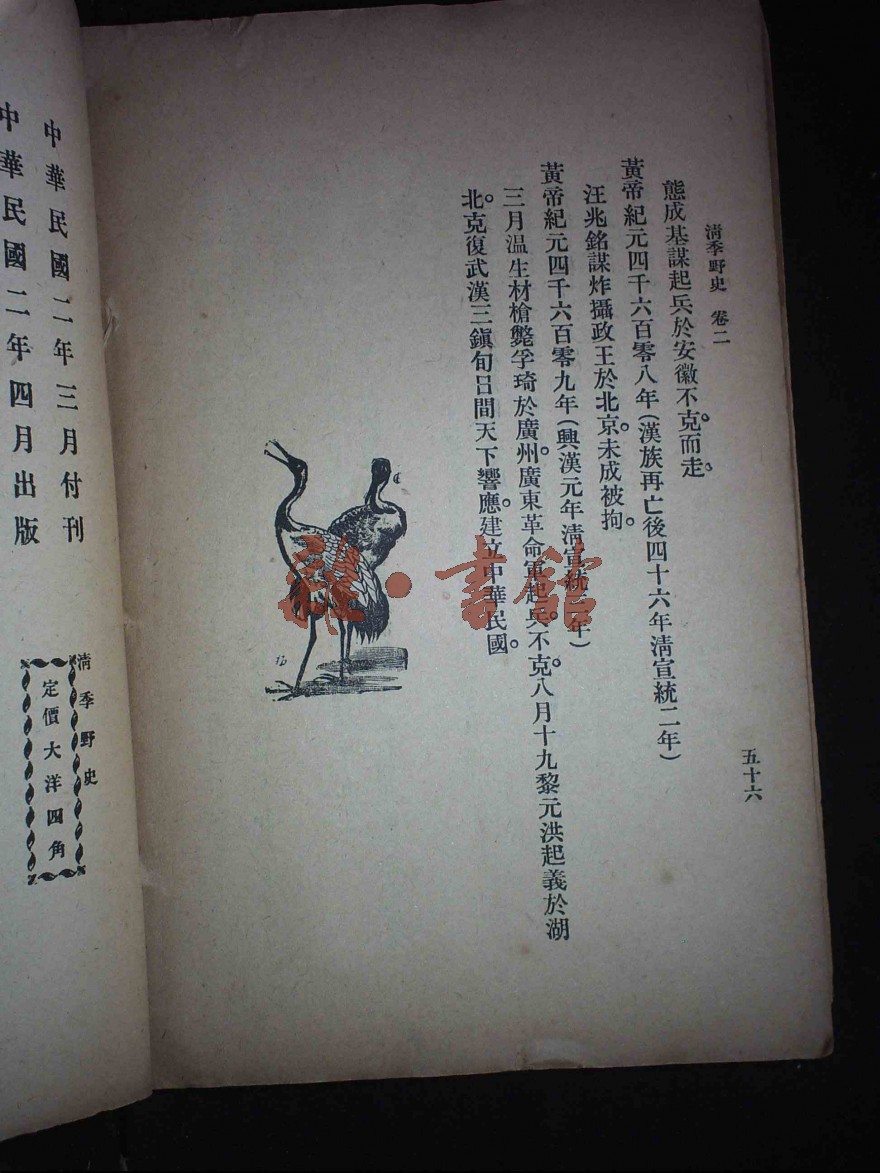 清季野史 卷二
態成基謀起兵於安徽不克。而走。
黃帝紀元四千六百零八年(漢族再亡後四十六年清宣統二年)
汪兆銘謀炸攝政王於北京。未成被拘。
黃帝紀元四千六百零九年(興漢元年清宣統三年)
三月温生材槍斃孚琦於廣州。廣東革命軍起兵。不克。八月十九黎元洪起義於湖
北。克復武漢三鎭旬日間天下響應。建立中華民國。
五十六
中華民國二年三月付刊
中華民國二年四月出版
清季野史
定價大洋四角
書館